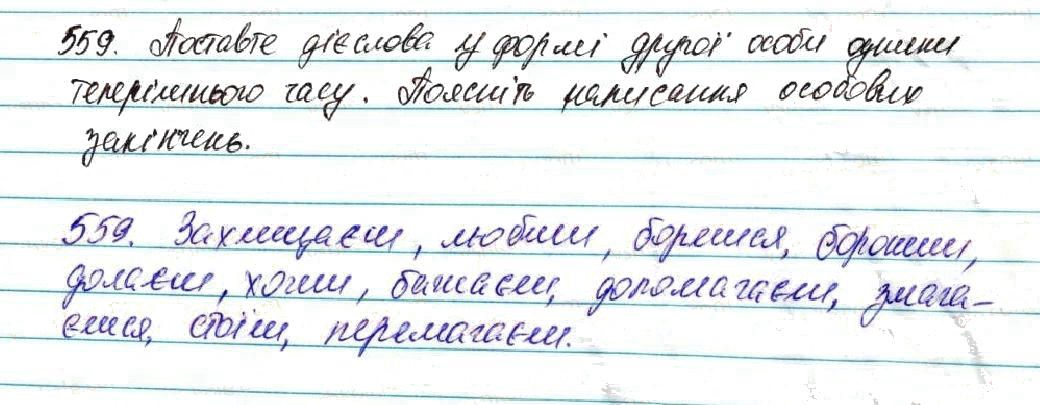 559. Поставте дієслова у формі другої особи однини
теперішнього часу. Поясніть написання особових
закінчень.
559. Захищаєш, любиш, борешся, борониш,
долаєш, хочеш, бажаєш, допомагаєш, змага-
єшся, стоїш, перемагаєш.